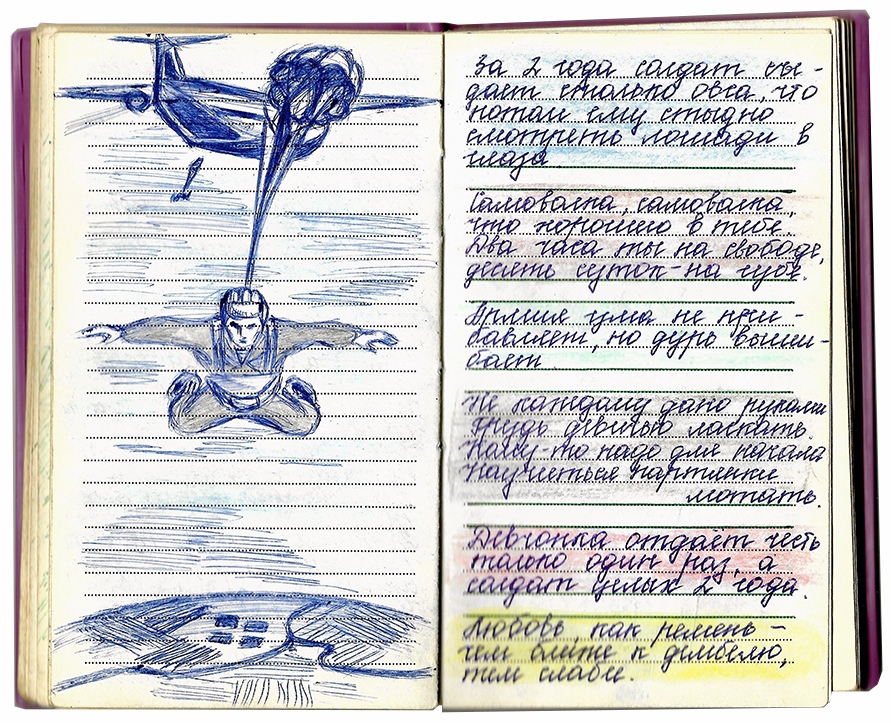 За 2 года солдат съе-
дает столько овса, что
потом ему стыдно
смотреть лошади в
глаза
Самоволка, самоволка,
что хорошего в тебе.
Два часа ты на свободе,
десять суток - на губе.
Армия ума не при-
бавляет, но дурь выши-
бает
Не каждому дано руками
грудь девичью ласкать.
Кому-то надо для начала
научиться портянки
мотать.
Девчонка отдаёт честь
только один раз, а
солдат целых 2 года.
Любовь, как ремень -
чем ближе к дембелю,
тем слабее.